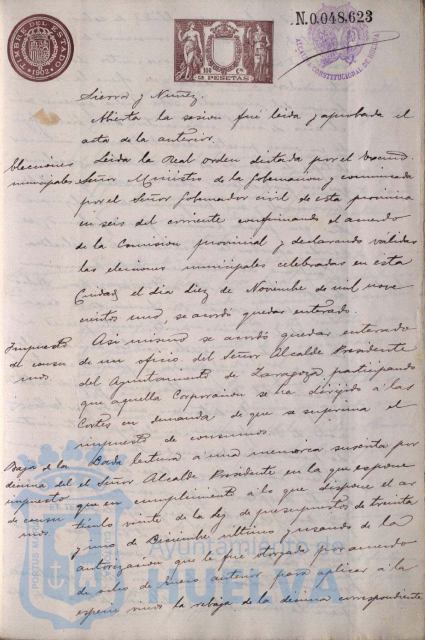 TIMBRE DEL ESTADO
1902
2 PESETAS
N.0.048,623
ALCALDIA CONSTITUCIONAL DE HUELVA
Sierra y Nuñez.
Abierta la sesion fué leida y aprobada el
acta de la anterior.
Elecciones municipales
Leida la Real orden dictada por el Excmo.
Señor Ministro de la Gobernacion y comunicada
por el Señor Gobernador civil de esta provincia
en seis del corriente confirmando el acuerdo
de la Comision provincial y declarando válidas
las elecciones municipales celebradas en esta
Ciudad el dia diez de Noviembre de mil nove
cientos uno, se acordó quedar enterado.
Impuesto de consu mos
Asi mismo se acordó quedar enterado
de un oficio del Señor Alcalde Presidente
del Ayuntamiento de Zaragoza participando
que aquella Corporacion se ha dirijido á las
Cortes en demanda de que se suprima el
impuesto de consumos.
Baja de la decima del impuesto de consu mos
Dada lectura á una memoria suscrita por
el Señor Alcalde Presidente en la que expone
que en cumplimiento á lo que dispone el ar
ticulo veinte de la ley de presupuestos de treinta
y uno de Diciembre último y usando de la
autorizacion que le fué otorgada por acuerdo
de ocho de Enero anterior para aplicar á la
especie vinos la rebaja de la decima correspondiente
PORTUS MARIS
Ayuntamiento de
HUELVA